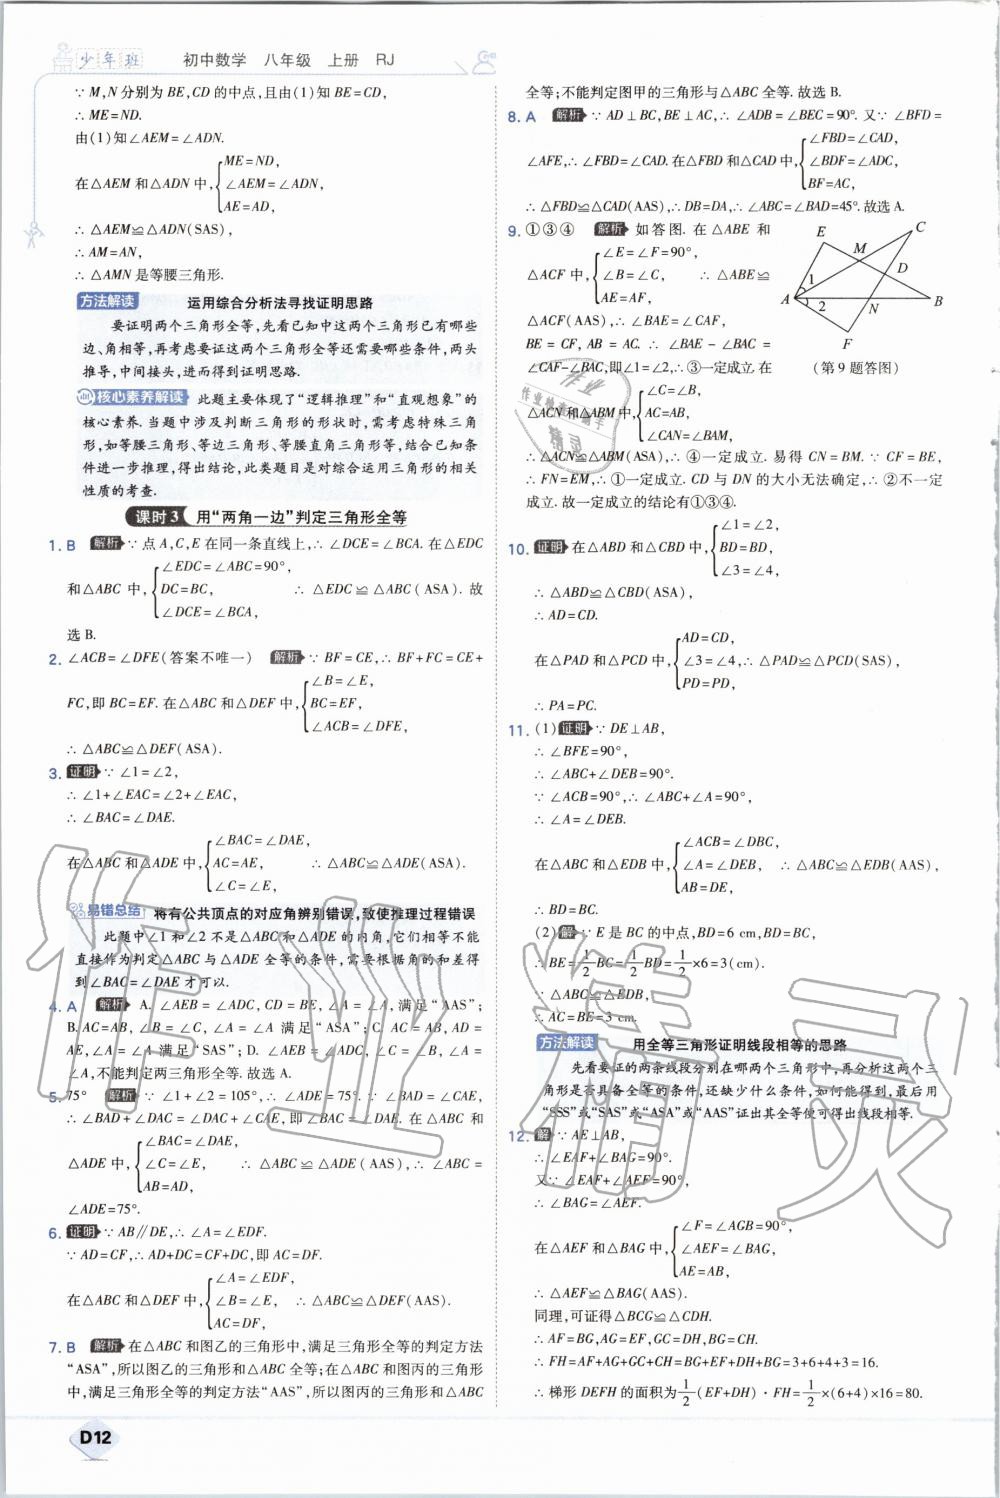 少年班 初中数学 八年级 上册 RJ
∵ M,N 分别为 BE,CD 的中点,且由(1)知 BE=CD,
∴ ME=ND.
由(1)知∠AEM=∠ADN.
在△AEM 和△ADN 中,{ME=ND,
∠AEM=∠ADN,
AE=AD,
∴ △AEM≌△ADN(SAS),
∴ AM=AN,
∴ △AMN 是等腰三角形.
方法解读 运用综合分析法寻找证明思路
要证明两个三角形全等,先看已知中这两个三角形已有哪些
边、角相等,再考虑要证这两个三角形全等还需要哪些条件,两头
推导,中间接头,进而得到证明思路.
核心素养解读 此题主要体现了“逻辑推理”和“直观想象”的
核心素养.当题中涉及判断三角形的形状时,需考虑特殊三角
形,如等腰三角形、等边三角形、等腰直角三角形等,结合已知条
件进一步推理,得出结论,此类题目是对综合运用三角形的相关
性质的考查.
课时3 用“两角一边”判定三角形全等
1. B 解析 ∵ 点 A,C,E 在同一条直线上,∴ ∠DCE=∠BCA. 在△EDC
和△ABC 中,{∠EDC=∠ABC=90°,
DC=BC,
∠DCE=∠BCA,
∴ △EDC≌△ABC(ASA). 故
选 B.
2. ∠ACB=∠DFE(答案不唯一) 解析 ∵ BF=CE,∴ BF+FC=CE+
FC,即 BC=EF. 在△ABC 和△DEF 中,{∠B=∠E,
BC=EF,
∠ACB=∠DFE,
∴ △ABC≌△DEF(ASA).
3. 证明 ∵ ∠1=∠2,
∴ ∠1+∠EAC=∠2+∠EAC,
∴ ∠BAC=∠DAE.
在△ABC 和△ADE 中,{∠BAC=∠DAE,
AC=AE,
∠C=∠E,
∴ △ABC≌△ADE(ASA).
易错总结 将有公共顶点的对应角辨别错误,致使推理过程错误
此题中∠1和∠2 不是△ABC和△ADE 的内角,它们相等不能
直接作为判定△ABC 与△ADE 全等的条件,需要根据角的和差得
到∠BAC=∠DAE 才可以.
4. A 解析 A. ∠AEB=∠ADC,CD=BE,∠A=∠A,满足“AAS”;
B. AC=AB,∠B=∠C,∠A=∠A 满足“ASA”;C. AC=AB,AD=
AE,∠A=∠A 满足“SAS”;D. ∠AEB=∠ADC,∠C=∠B,∠A=
∠A,不能判定两三角形全等. 故选 A.
5. 75° 解析 ∵ ∠1+∠2=105°,∴ ∠ADE=75°. ∵ ∠BAD=∠CAE,
∴ ∠BAD+∠DAC=∠DAC+∠CAE,即∠BAC=∠DAE. 在△ABC 和
△ADE 中,{∠BAC=∠DAE,
∠C=∠E,
AB=AD,
∴ △ABC≌△ADE(AAS),∴ ∠ABC=
∠ADE=75°.
6. 证明 ∵ AB∥DE,∴ ∠A=∠EDF.
∵ AD=CF,∴ AD+DC=CF+DC,即 AC=DF.
在△ABC 和△DEF 中,{∠A=∠EDF,
∠B=∠E,
AC=DF,
∴ △ABC≌△DEF(AAS).
7. B 解析 在△ABC 和图乙的三角形中,满足三角形全等的判定方法
“ASA”,所以图乙的三角形和△ABC 全等;在△ABC 和图丙的三角形
中,满足三角形全等的判定方法“AAS”,所以图丙的三角形和△ABC
D12
全等;不能判定图甲的三角形与△ABC 全等. 故选 B.
8. A 解析 ∵ AD⊥BC,BE⊥AC,∴ ∠ADB=∠BEC=90°. 又∵ ∠BFD=
∠AFE,∴ ∠FBD=∠CAD. 在△FBD 和△CAD 中,{∠FBD=∠CAD,
∠BDF=∠ADC,
BF=AC,
∴ △FBD≌△CAD(AAS),∴ DB=DA,∴ ∠ABC=∠BAD=45°. 故选 A.
9. ①③④ 解析 如答图. 在△ABE 和
△ACF 中,{∠E=∠F=90°,
∠B=∠C,
AE=AF,
∴ △ABE≌
△ACF(AAS),∴ ∠BAE=∠CAF,
BE=CF,AB=AC. ∴ ∠BAE-∠BAC=
∠CAF-∠BAC,即∠1=∠2,∴ ③一定成立. 在
△ACN 和△ABM 中,{∠C=∠B,
AC=AB,
∠CAN=∠BAM,
∴ △ACN≌△ABM(ASA),∴ ④一定成立. 易得 CN=BM. ∵ CF=BE,
∴ FN=EM,∴ ①一定成立. CD 与 DN 的大小无法确定,∴ ②不一定
成立. 故一定成立的结论有①③④.
E C M D A 1 2 N B F
(第 9 题答图)
10. 证明 在△ABD 和△CBD 中,{∠1=∠2,
BD=BD,
∠3=∠4,
∴ △ABD≌△CBD(ASA),
∴ AD=CD.
在△PAD 和△PCD 中,{AD=CD,
∠3=∠4,
PD=PD,
∴ △PAD≌△PCD(SAS),
∴ PA=PC.
11. (1)证明 ∵ DE⊥AB,
∴ ∠BFE=90°,
∴ ∠ABC+∠DEB=90°.
∵ ∠ACB=90°,∴ ∠ABC+∠A=90°,
∴ ∠A=∠DEB.
在△ABC 和△EDB 中,{∠ACB=∠DBC,
∠A=∠DEB,
AB=DE,
∴ △ABC≌△EDB(AAS),
∴ BD=BC.
(2)解 ∵ E 是 BC 的中点,BD=6 cm,BD=BC,
∴ BE=1/2 BC=1/2 BD=1/2×6=3(cm).
∵ △ABC≌△EDB,
∴ AC=BE=3 cm.
方法解读 用全等三角形证明线段相等的思路
先看要证的两条线段分别在哪两个三角形中,再分析这两个三
角形是否具备全等的条件,还缺少什么条件,如何能得到,最后用
“SSS”或“SAS”或“ASA”或“AAS”证出其全等便可得出线段相等.
12. 解 ∵ AE⊥AB,
∴ ∠EAF+∠BAG=90°.
又∵ ∠EAF+∠AEF=90°,
∴ ∠BAG=∠AEF.
在△AEF 和△BAG 中,{∠F=∠AGB=90°,
∠AEF=∠BAG,
AE=AB,
∴ △AEF≌△BAG(AAS).
同理,可证得△BCG≌△CDH.
∴ AF=BG,AG=EF,GC=DH,BG=CH.
∴ FH=AF+AG+GC+CH=BG+EF+DH+BG=3+6+4+3=16.
∴ 梯形 DEFH 的面积为 1/2 (EF+DH)·FH=1/2×(6+4)×16=80.
作业精灵